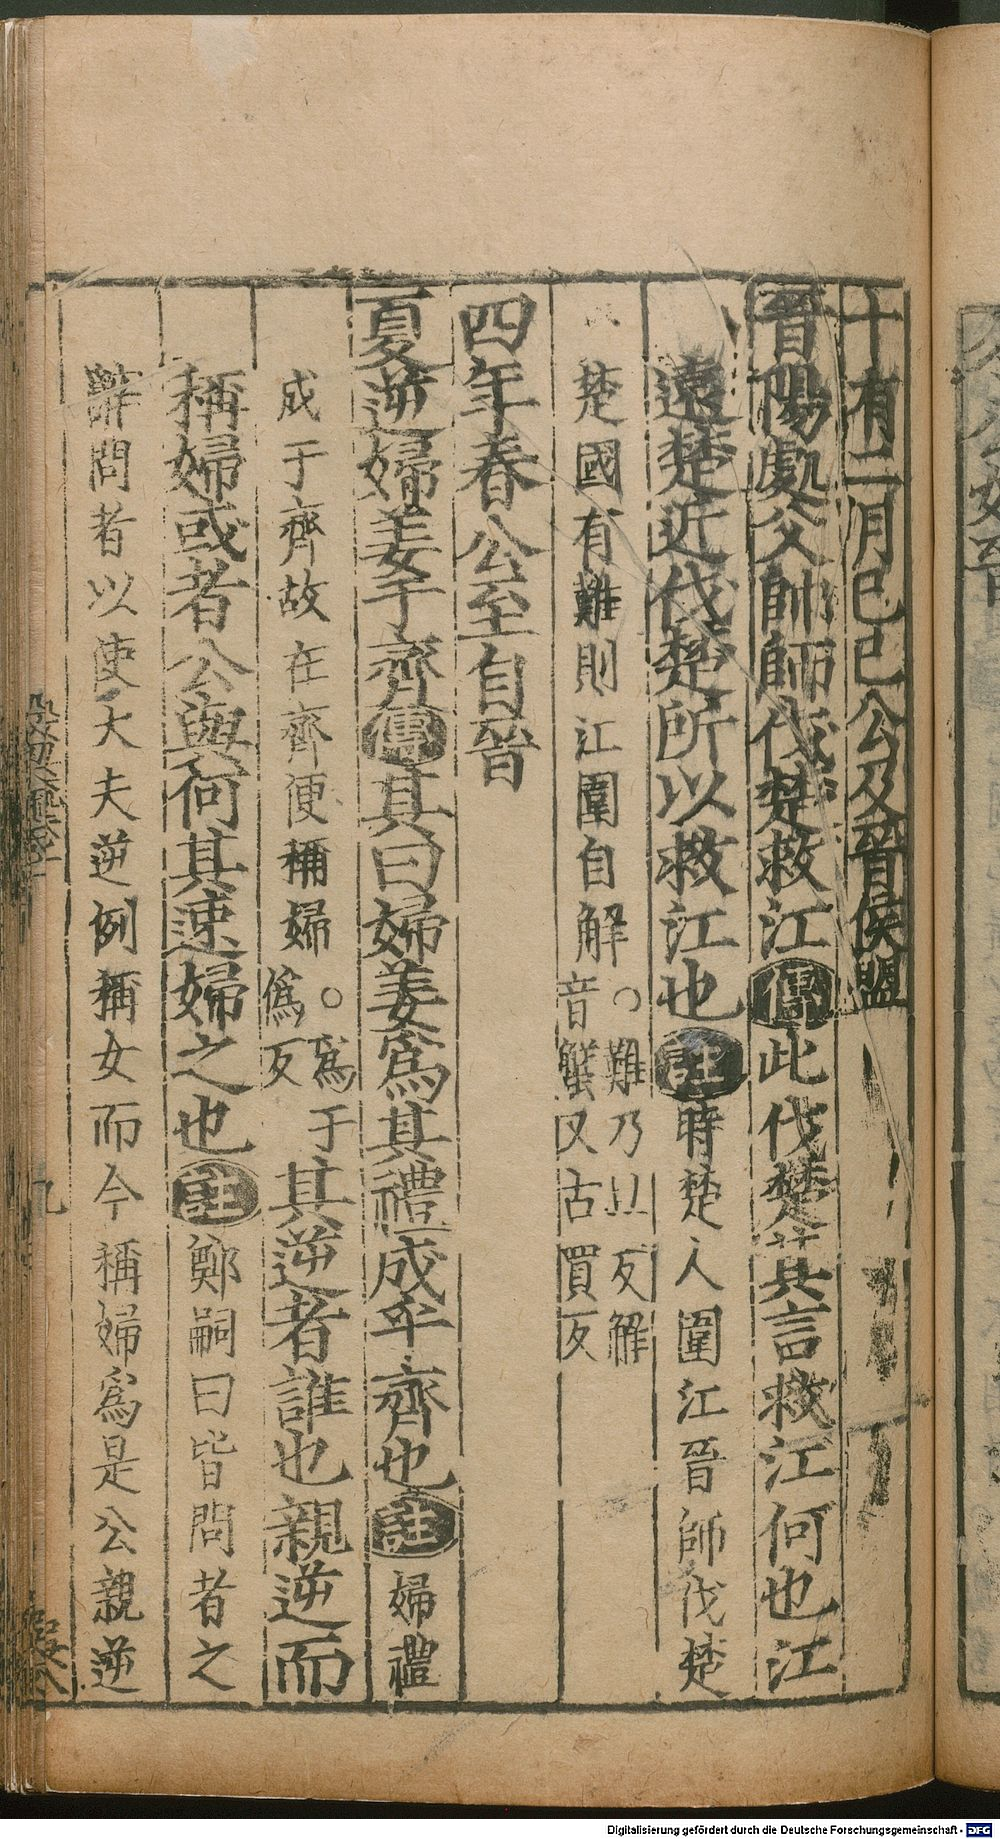 十有二月己巳公及晉侯盟
晉陽處父帥師伐楚救江傳此伐楚其言救江何也江
遠楚近伐楚所以救江也註時楚人圍江晉師伐楚
楚國有難則江圍自解○難乃旦反解
音蟹又古買反
四年春公至自晉
夏逆婦姜于齊傳其曰婦姜爲其禮成乎齊也註婦禮
成于齊故在齊便稱婦。爲于
僞反其逆者誰也親逆而
稱婦或者公與何其速婦之也註鄭嗣曰皆問者之
辭問者以使大夫逆例稱女而今稱婦爲是公親逆
九
Digitalisierung gefördert durch die Deutsche Forschungsgemeinschaft - DFG